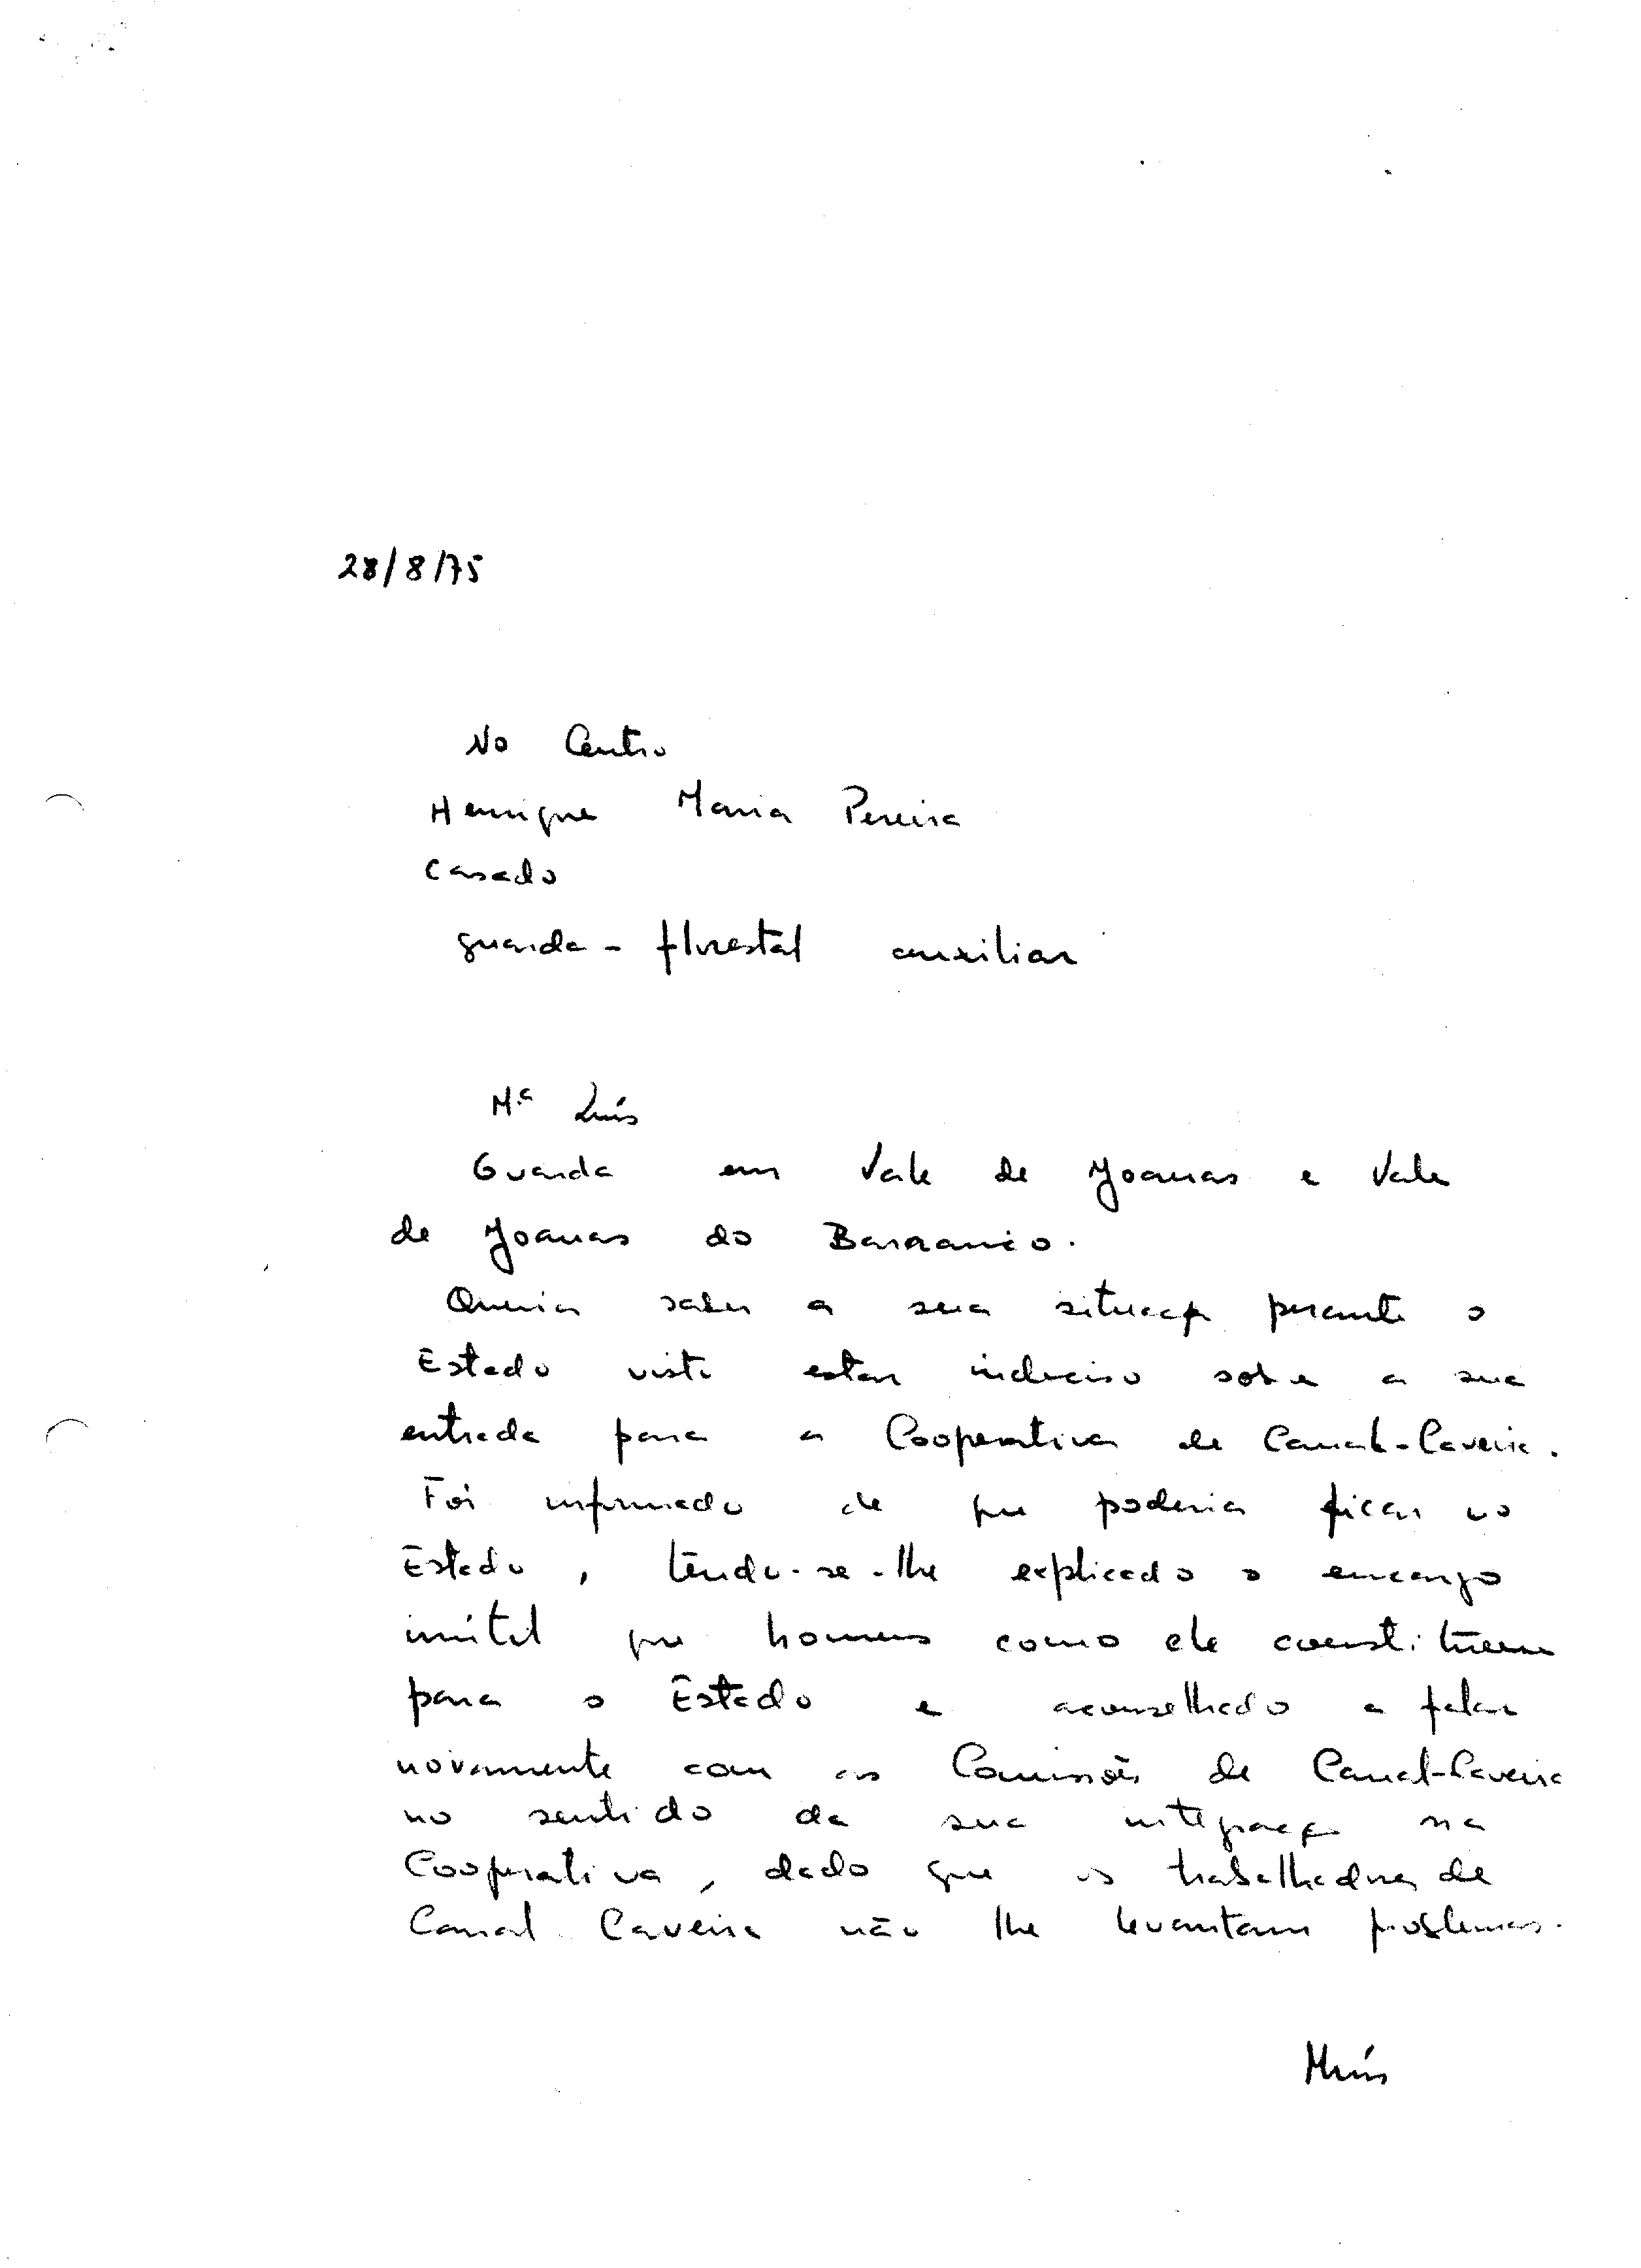 28/8/75
No Centro
Henrique Maria Pereira
Casado
guarda-florestal auxiliar
M.ª Luís
Guarda em Vale de Joanas e Vale
de Joanas do Barranco.
Queria saber a sua situaçº perante o
Estado visto estar indeciso sobre a sua
entrada para a Cooperativa de Canal-Caveira.
Foi informado de que poderia ficar no
Estado, tendo-se-lhe explicado o encargo
inútil que homens como ele constituem
para o Estado e aconselhado a falar
novamente com as Comissões de Canal-Caveira
no sentido da sua integraçº na
Cooperativa, dado que os trabalhadores de
Canal Caveira não lhe levantam problemas.